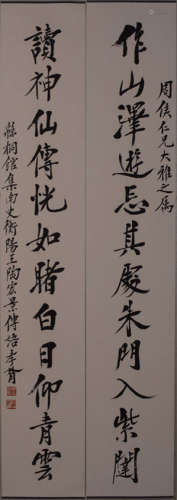 周侯仁兄大雅之属
作山澤遊忘其殿朱門入紫闥
讀神仙傳恍如睹白日仰青雲
集南史衡陽王陶宏景傳語李